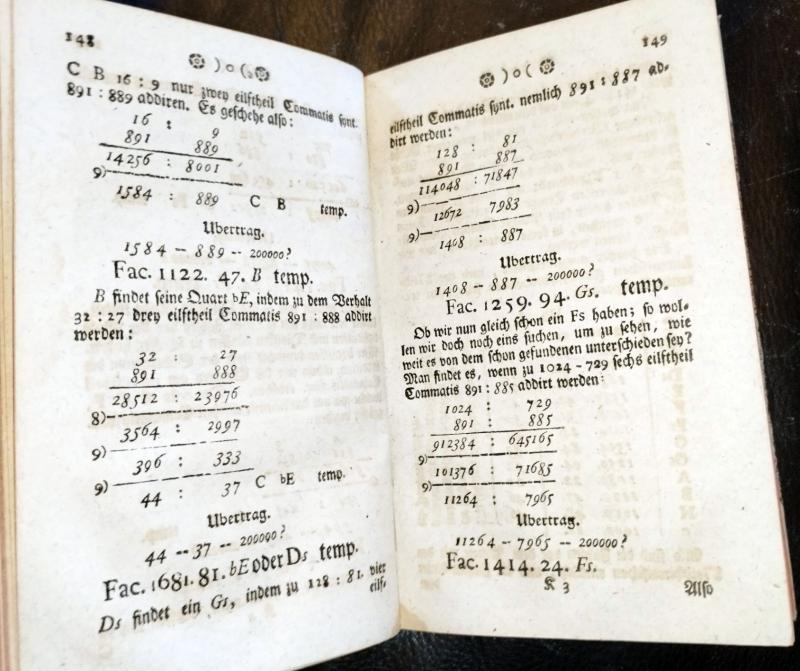 148
) o (
C B 16 : 9 nur zwey eilftheil Commatis synt.
891 : 889 addiren. Es geschehe also:
16 : 9
891 889
14256 : 8001
9)
1584 : 889 C B temp.
Ubertrag.
1584 -- 889 -- 200000?
Fac. 1122. 47. B temp.
B findet seine Quart bE, indem zu dem Verhalt
32 : 27 drey eilftheil Commatis 891 : 888 addirt
werden:
32 : 27
891 888
28512 : 23976
8)
3564 : 2997
9)
396 : 333
9)
44 : 37 C bE temp.
Ubertrag.
44 -- 37 -- 200000?
Fac. 1681. 81. bE oder Ds temp.
Ds findet ein Gs, indem zu 128 : 81. vier
eilf-
149
) o (
eilftheil Commatis synt. nemlich 891 : 887 ad-
dirt werden:
128 : 81
891 887
114048 : 71847
9)
12672 7983
9)
1408 : 887
Ubertrag.
1408 -- 887 -- 200000?
Fac. 1259. 94. Gs. temp.
Ob wir nun gleich schon ein Fs haben; so wol-
len wir doch noch eins suchen, um zu sehen, wie
weit es von dem schon gefundenen unterschieden sey?
Man findet es, wenn zu 1024 - 729 sechs eilftheil
Commatis 891 : 885 addirt werden:
1024 : 729
891 : 885
912384 : 645165
9)
101376 : 71685
9)
11264 : 7965
Ubertrag.
11264 -- 7965 -- 200000?
Fac. 1414. 24. Fs.
K 3
Also